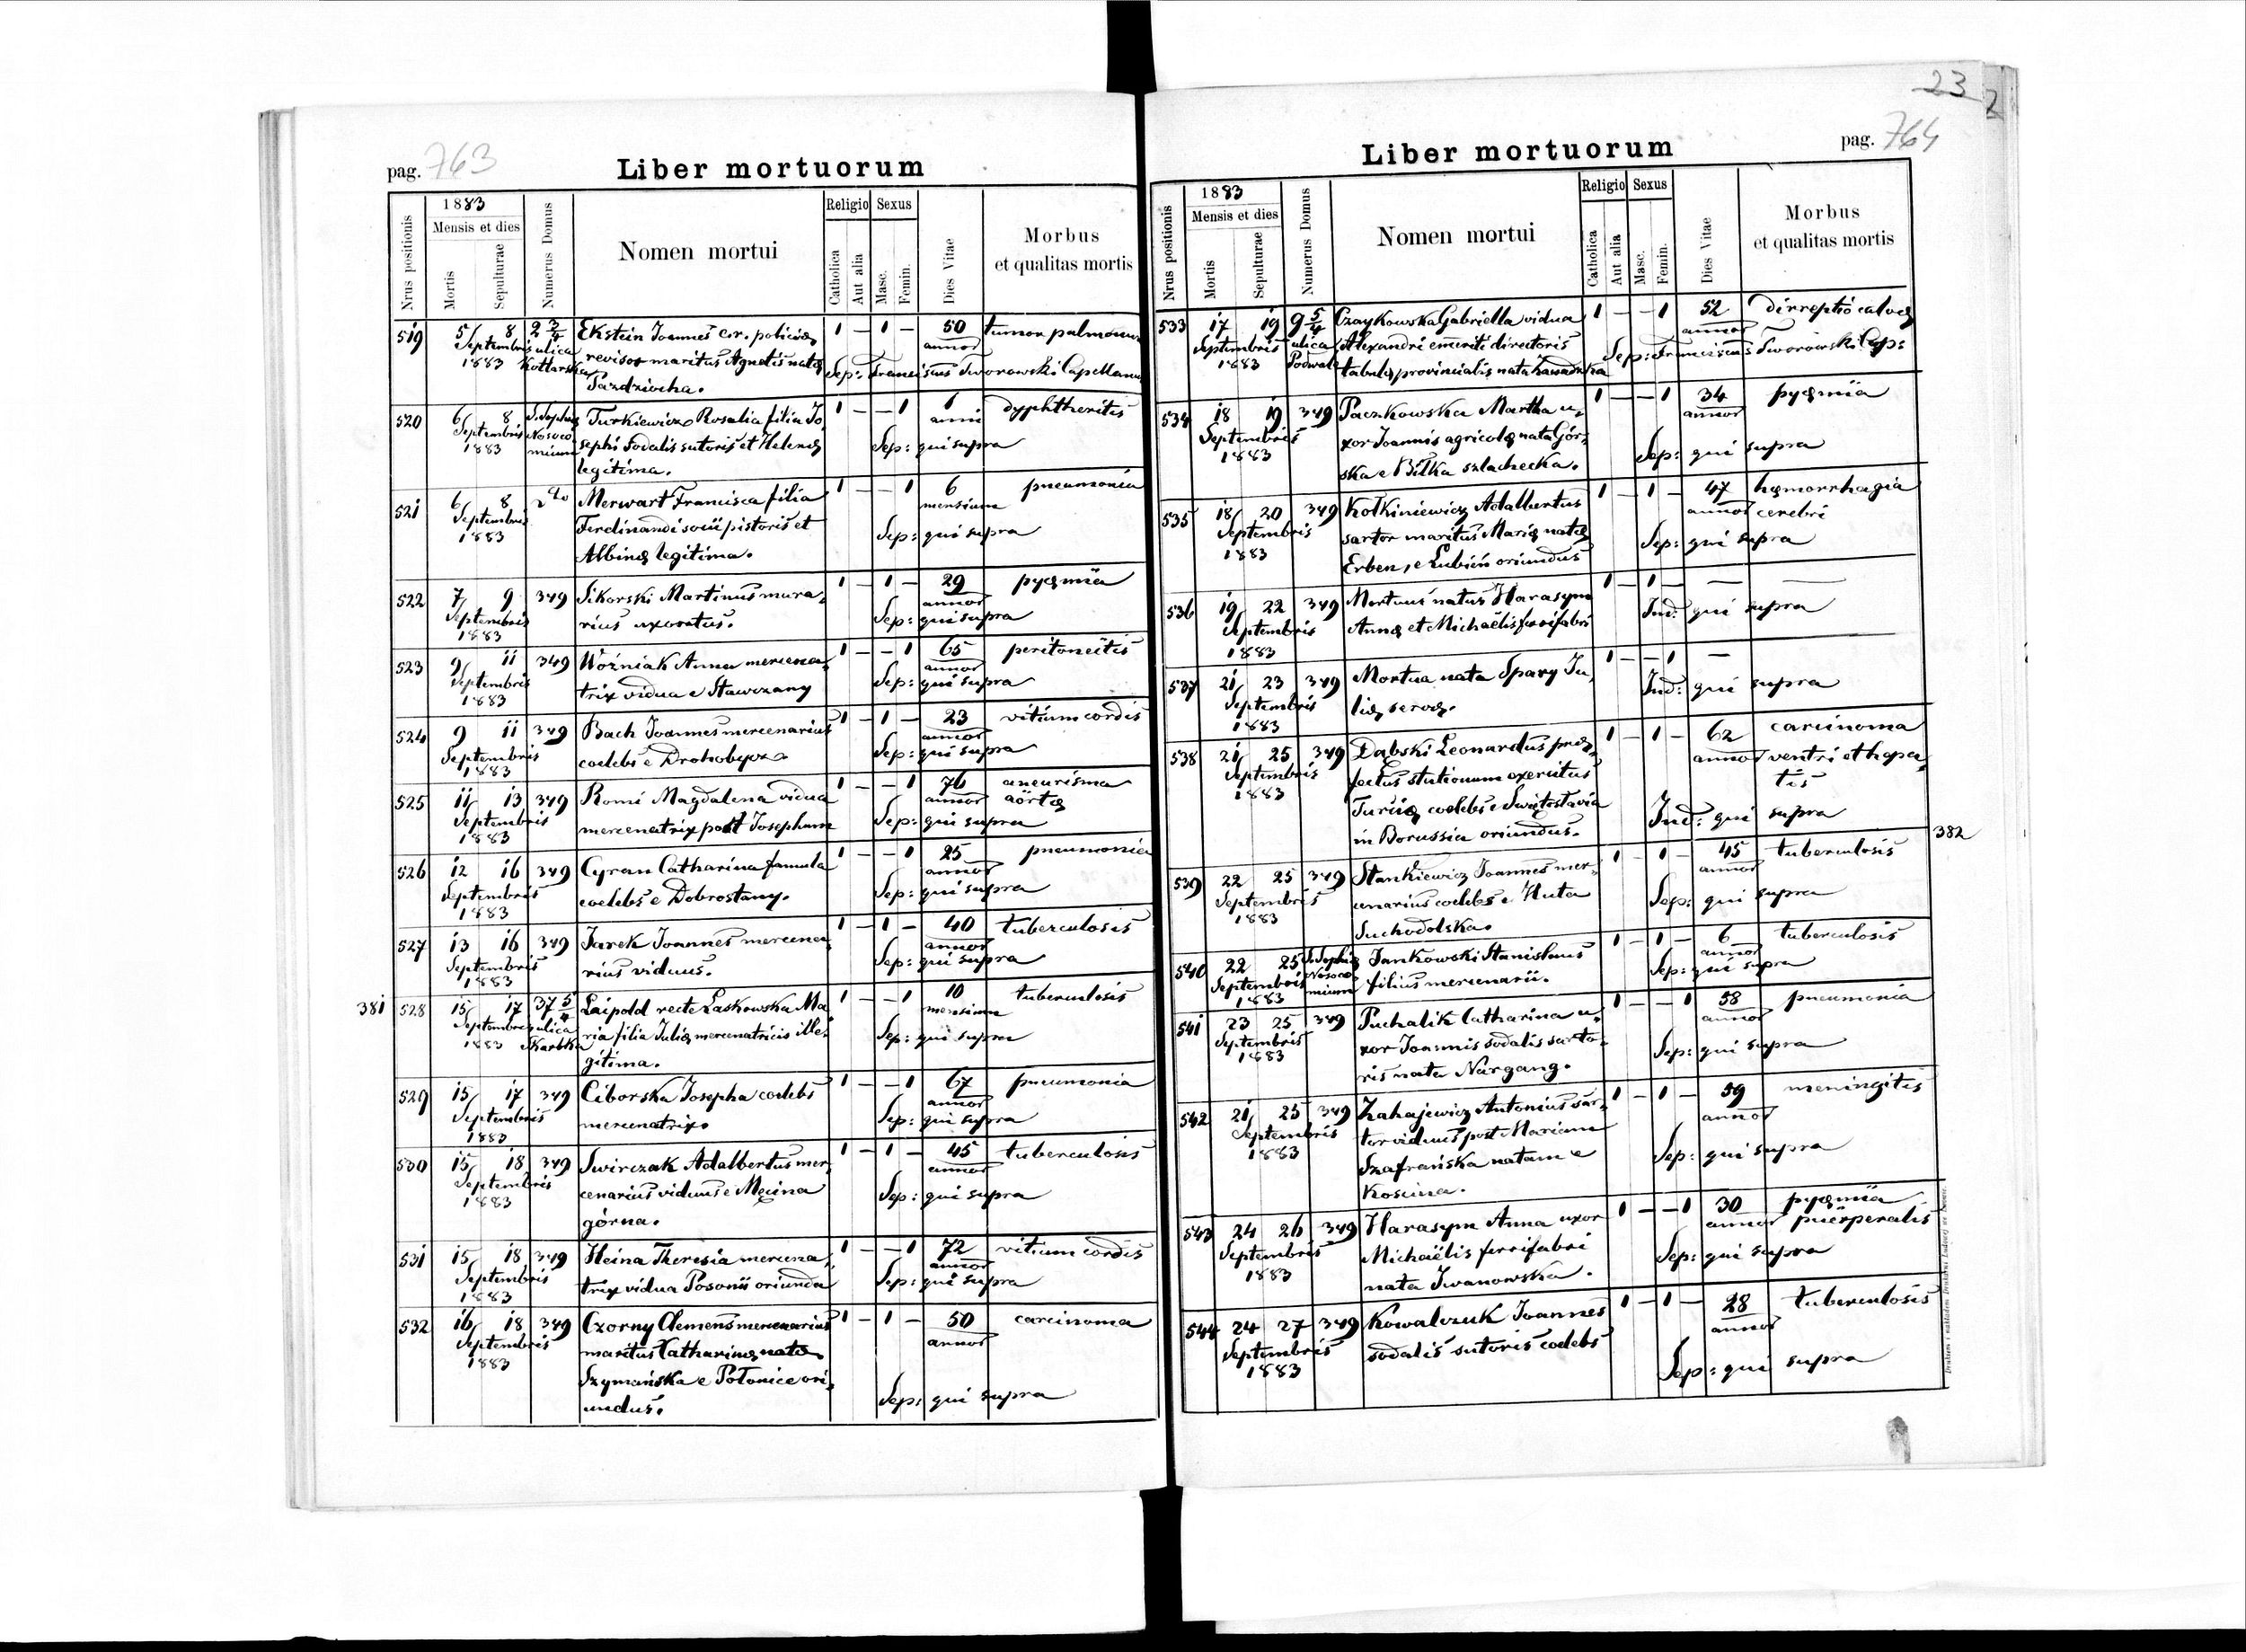 23
2
pag. 763
Liber mortuorum
Nrus positionis
1883
Mensis et dies
Mortis
Sepulturae
Numerus Domus
Nomen mortui
Religio
Catholica
Aut alia
Sexus
Masc.
Femin.
Dies Vitae
Morbus
et qualitas mortis
519 5/ 8 2 3/4 Ekstein Joannes cer. policiæ 1 — 1 — 50 tumor pulmonum
Septembris ulica revisor maritus Agnetis natæ annor
1883 Kotlarska Pazdziocha. Sep: Franciscus Tworowski Capellanus
520 6/ 8 S. Sophiæ Turkiewicz Rosalia filia Jo, 1 — — 1 1 dyphtheritis
Septembris Nosoco sephi sodalis sutoris et Helenæ anni
1883 mium legitima. Sep: qui supra
521 6/ 8 dto Merwart Francisca filia 1 — — 1 6 pneumonia
Septembris Ferdinandi socii pistoris et mensium
1883 Albinæ legitima. Sep: qui supra
522 7/ 9 349 Sikorski Martinus mura, 1 — 1 — 29 pyæmia
Septembris rius uxoratus. annor
1883 Sep: qui supra
523 9/ 11 349 Woźniak Anna mercena, 1 — — 1 65 peritoneitis
Septembris trix vidua e Stawczany annor
1883 Sep: qui supra
524 9 11 349 Bach Joannes mercenarius 1 — 1 — 23 vitium cordis
Septembris coelebs e Drohobycz annor
1883 Sep: qui supra
525 11/ 13 349 Romi Magdalena vidua 1 — — 1 76 aneurisma
Septembris mercenatrix post Josephum annor aörtæ
1883 Sep: qui supra
526 12 16 349 Cyran Catharina famula 1 — — 1 25 pneumonia
Septembris coelebs e Dobrostany. annor
1883 Sep: qui supra
527 13 16 349 Jarek Joannes mercena, 1 — 1 — 40 tuberculosis
Septembris rius viduus. annor
1883 Sep: qui supra
381 528 15/ 17 37 5/4 Laipold recte Laskowska Ma 1 — — 1 10 tuberculosis
Septembris ulica ria filia Juliæ mercenatricis ille, mensium
1883 Skarbka gitima. Sep: qui supra
529 15/ 17 349 Ciborska Josepha coelebs 1 — — 1 67 pneumonia
Septembris mercenatrix. annor
1883 Sep: qui supra
530 15/ 18 349 Swirczak Adalbertus mer, 1 — 1 — 45 tuberculosis
Septembris cenarius viduus e Męcina annor
1883 górna. Sep: qui supra
531 15/ 18 349 Heina Theresia mercena, 1 — — 1 72 vitium cordis
Septembris trix vidua Posonii oriunda annor
1883 Sep: qui supra
532 16/ 18 349 Czorny Clemens mercenarius 1 — 1 — 50 carcinoma
Septembris maritus Catharinæ natæ annor
1883 Szymańska e Połonice ori,
undus. Sep: qui supra
pag. 764
Liber mortuorum
Nrus positionis
1883
Mensis et dies
Mortis
Sepulturae
Numerus Domus
Nomen mortui
Religio
Catholica
Aut alia
Sexus
Masc.
Femin.
Dies Vitae
Morbus
et qualitas mortis
533 17 19 9 5/4 Czaykowska Gabriella vidua 1 — — 1 52
Septembris ulica Alexandri emeriti directoris annor
1883 Podwale tabulæ provincialis nata Sep: Franciscus Tworowski Cap:
534 18 19 349 Paczkowska Martha u, 1 — — 1 34 pyæmia
Septembris xor Joannis agricolæ nata Gór, annor
1883 ska e Biłka szlachecka. Sep: qui supra
535 18/ 20 349 Kotkiniewicz Adalbertus 1 — 1 — 47 hæmorrhagia
Septembris sartor maritus Mariæ natæ annor cerebri
1883 Erben, e Lubień oriundus Sep: qui supra
536 19/ 22 349 Mortuus natus Harasym 1 — 1 — — —
Septembris Annæ et Michaëlis ferrifabri Ind: qui supra
1883
537 21/ 23 349 Mortua nata Spary Ju, 1 — — 1 —
Septembris liæ servæ. Ind: qui supra
1883
538 21/ 25 349 Dąbski Leonardus præ, 1 — 1 — 62 carcinoma
Septembris fectus stationum exercitus annor ventri et hepa,
1883 Turciæ coelebs e Swiętosławia tis
in Borussia oriundus. Ind: qui supra
382
539 22 25 349 Stankiewicz Joannes mer, 1 — 1 — 45 tuberculosis
Septembris cenarius coelebs e Huta annor
1883 Suchodolska. Sep: qui supra
540 22 25 S. Sophiæ Jankowski Stanislaus 1 — 1 — 6 tuberculosis
Septembris Nosoco filius mercenarii. annor
1883 mium Sep: qui supra
541 23 25 349 Puchalik Catharina u, 1 — — 1 58 pneumonia
Septembris xor Joannis sodalis sarto, annor
1883 ris nata Nargang. Sep: qui supra
542 21/ 25 349 Zahajewicz Antonius sar, 1 — 1 — 59 meningitis
Septembris tor viduus post Mariam annor
1883 Szafrańska natam e
Koscina. Sep: qui supra
543 24 26 349 Harasym Anna uxor 1 — — 1 30 pyæmia
Septembris Michaëlis ferrifabri annor puerperalis
1883 nata Iwanowska. Sep: qui supra
544 24 27 349 Kowalczuk Joannes 1 — 1 — 28 tuberculosis
Septembris sodalis sutoris coelebs annor
1883 Sep: qui supra